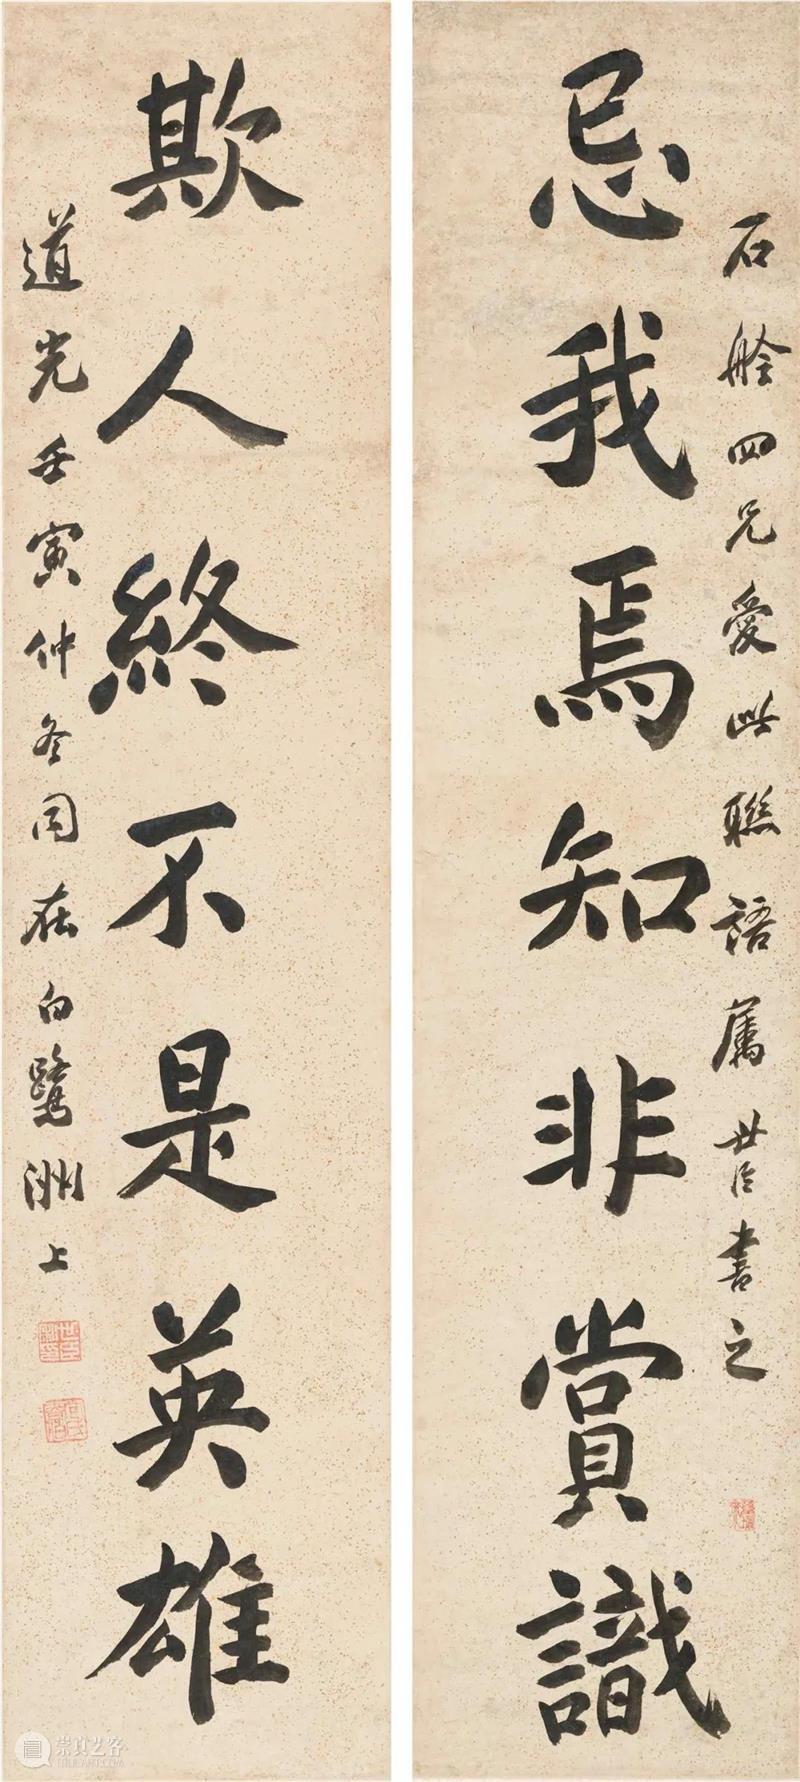 石舲四兄愛此聯語屬世臣書之
忌我焉知非賞識
欺人終不是英雄
道光壬寅仲冬同在白鷺洲上
世臣
崇真艺客